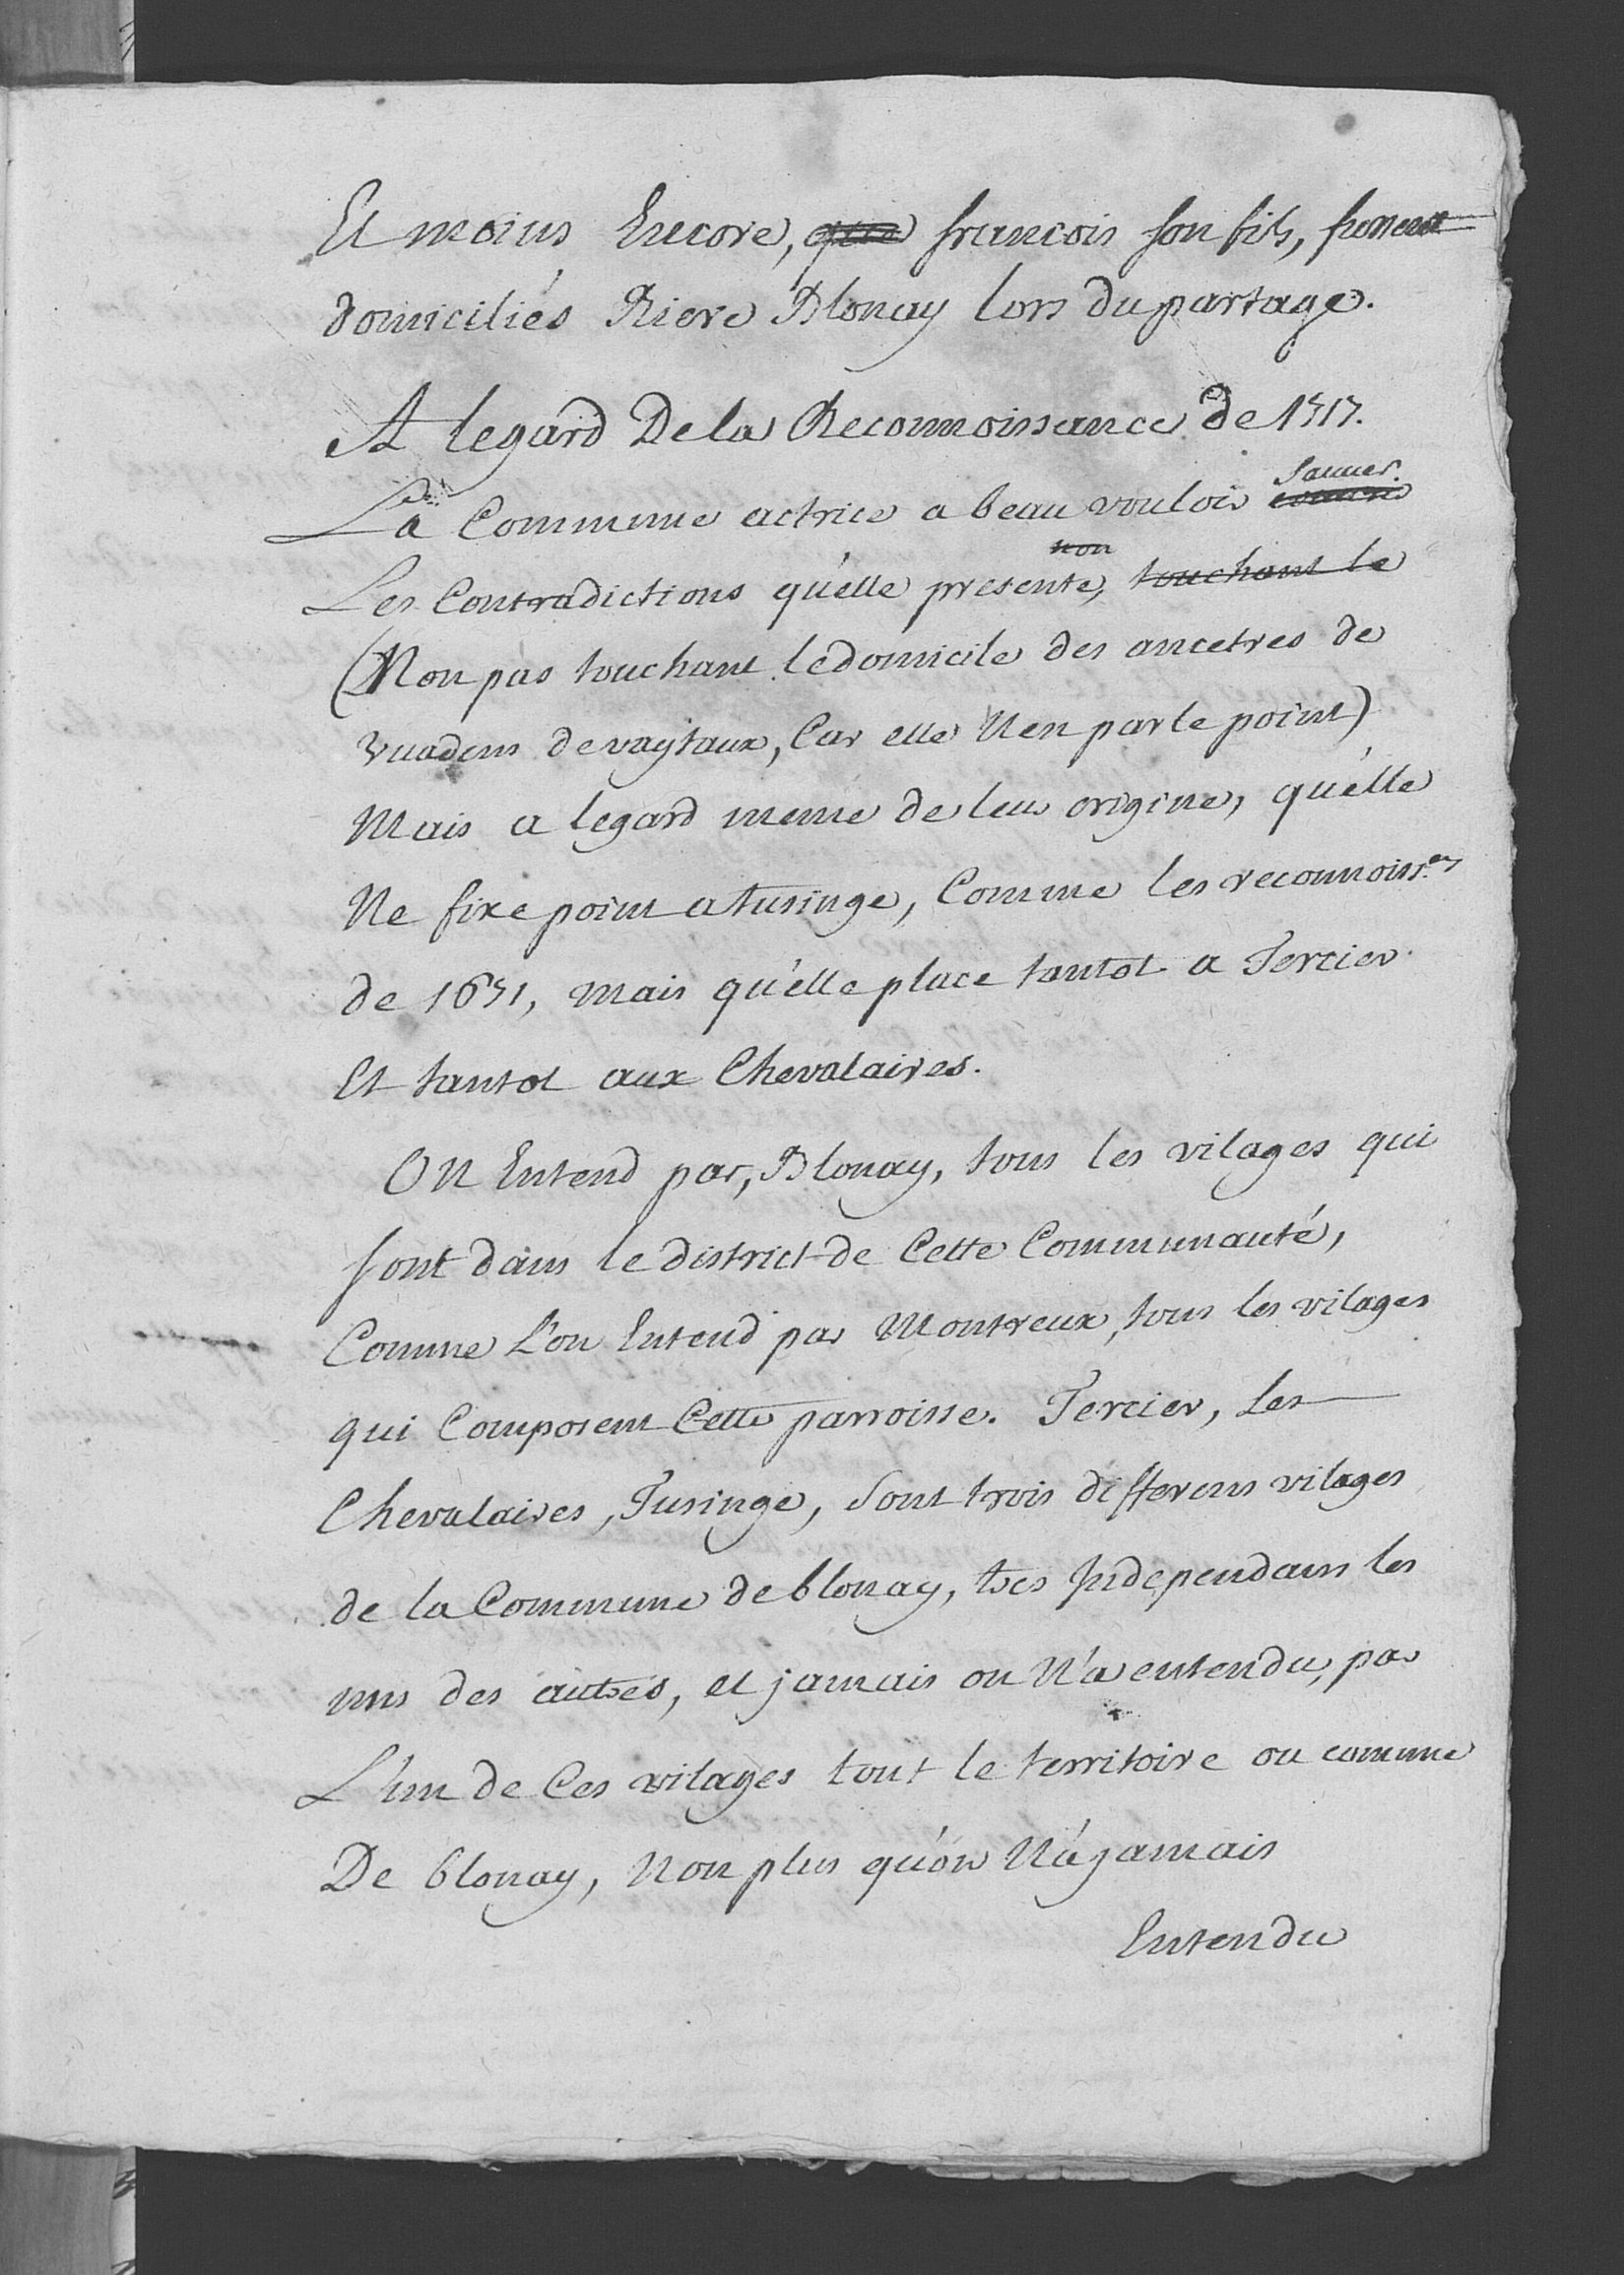 Et moins Encore, que francois son fils, fussent
domiciliés Riere Blonay lors du partage.
A legard De la Reconnoissance de 1517.
La Commune actrice a beau vouloir sauver
Les Contradictions qu'elle presente, non touchant le
(Non pas touchant le domicile des ancetres de
vuadens de vaytaux, Car elle N'en parle point)
Mais a legard meme de leur origine, qu'elle
Ne fixe point a tusinge, Comme les reconnoiss.es
de 1651, Mais qu'elle place tantot a Tercier
Et tantot aux Chevalaires.
ON Entend par, Blonay, tous les vilages qui
sont dans le district de Cette Communauté,
Comme L'on Entend par Montreux, tous les vilages
qui Composent Cette parroisse. Tercier, Les
Chevalaires, Tusinge, Sont trois differens vilages
de la Commune de blonay, tres Independans les
uns des autres, et jamais on N'a entendu, par
L'un de Ces vilages tout le territoire ou commune
De blonay, Non plus qu'on N'a jamais
Entendu